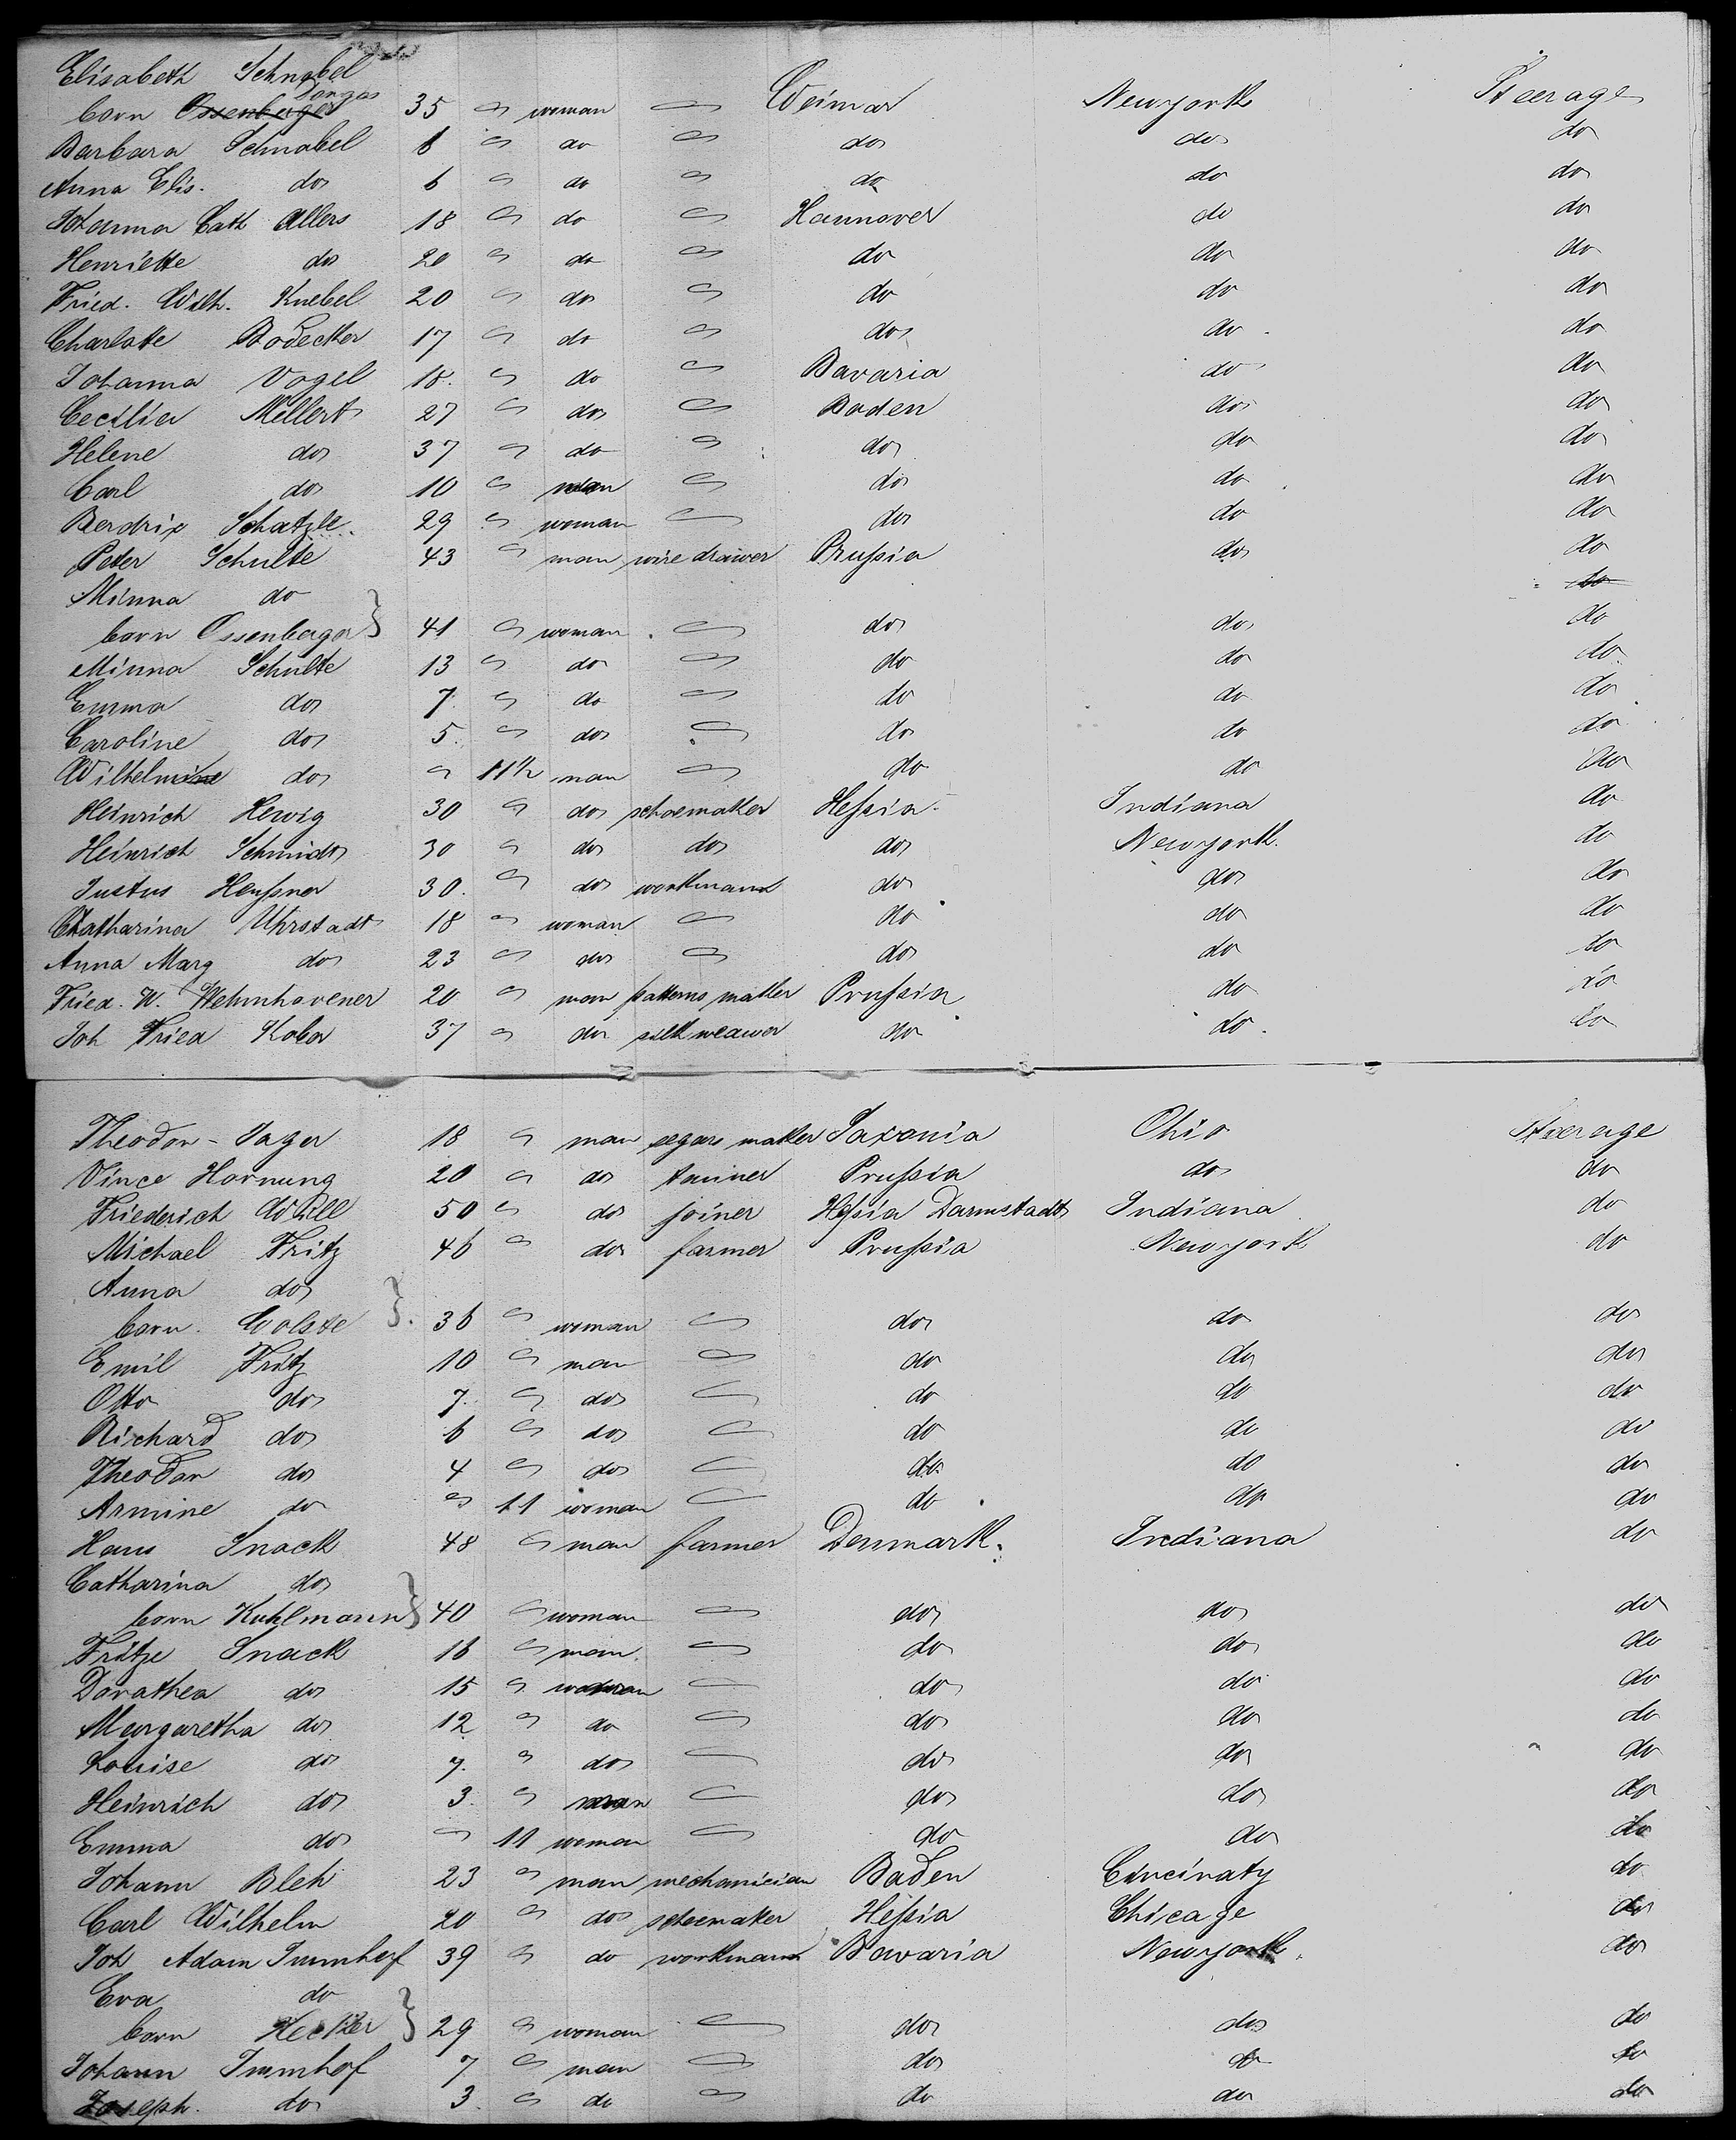 Elisabeth Schnabel
born Ossenberger Donges 35 woman Weimar Newyork Steerage
Barbara Schnabel 8 do do do do
Anna Elis. do 6 do do do do
Johanna Cath Allers 18 do Hannover do do
Henriette do 20 do do do do
Fried. Wilh. Knebel 20 do do do do
Charlotte Bodecker 17 do do do do
Johanna Vogel 18. do Bavaria do do
Cecilia Mellert 27 do Baden do do
Helene do 37 do do do do
Carl do 10 man do do do
Berdrix Schatzle 29 woman do do do
Peter Schulte 43 man wire drawer Prussia do do
Minna do do
born Ossenberger } 41 woman do do do
Minna Schulte 13 do do do do
Emma do 7. do do do do
Caroline do 5. do do do do
Wilhelmine do 11½ man do do do
Heinrich Hewig 30 do schoemaker Hessia Indiana do
Heinrich Schmidt 30 do do do Newyork. do
Justus Heussner 30. do workmann do do do
Catharina Uhrstadt 18 woman do do do
Anna Marg do 23 do do do do
Fried. W. Wehmhovener 20 man patterns maker Prussia do do
Joh Fried Kober 37 do silk weawer do do do
Theodor Jager 18 man segars maker Saxonia Ohio Steerage
Vince Hornung 20 do tanner Prussia do do
Friederich Will 50 do joiner Hessia Darmstadt Indiana do
Michael Fritz 46 do farmer Prussia Newyork do
Anna do
born Wolste }. 36 woman do do do
Emil Fritz 10 man do do do
Otto do 7. do do do do
Richard do 6 do do do do
Theodor do 4 do do do do
Armine do 11 woman do do do
Hans Snack 48 man farmer Denmark. Indiana do
Catharina do
born Kuhlmann } 40 woman do do do
Fritze Snack 16 man do do do
Dorathea do 15 woman do do do
Margaretha do 12 do do do do
Louise do 7. do do do do
Heinrich do 3 man do do do
Emma do 11 woman do do do
Johann Bleh 23 man mechanician Baden Cincinaty do
Carl Wilhelm 20 do schoemaker Hessia Chicage do
Joh Adam Immhof 39 do workmann Bavaria Newyork do
Eva do
born Hecker } 29 woman do do do
Johann Immhof 7 man do do do
Joseph. do 3 do do do do